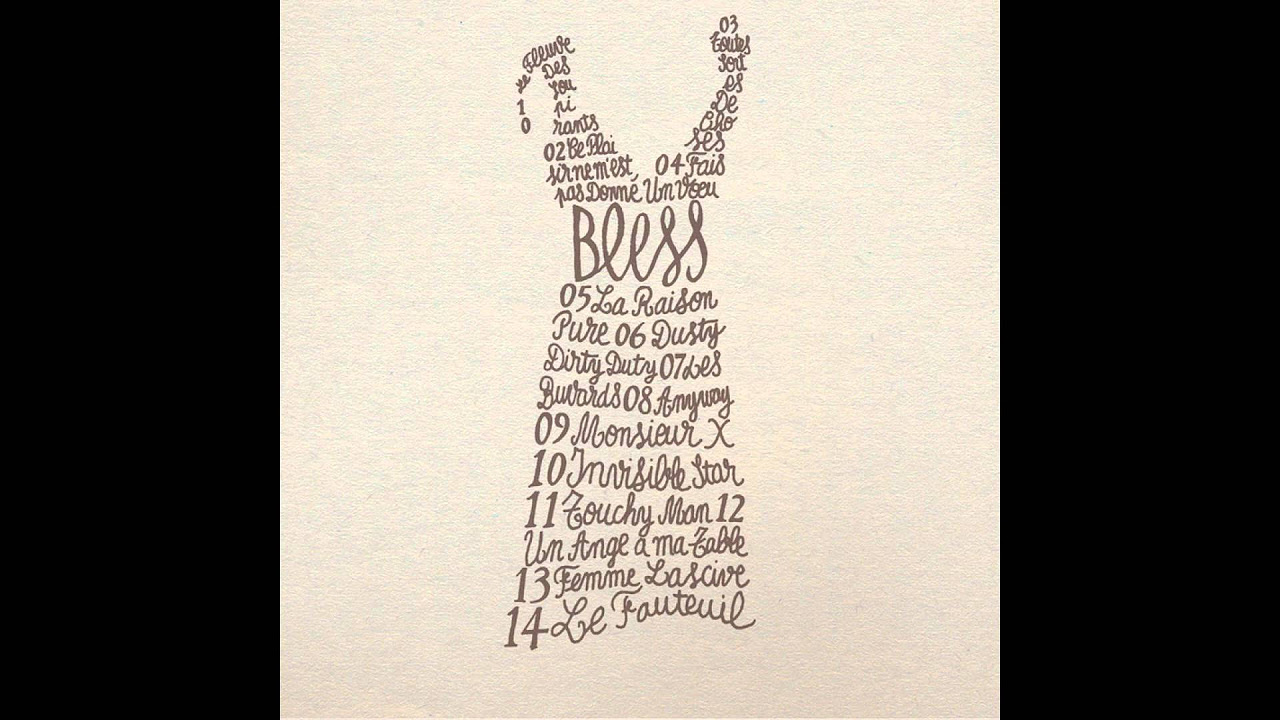 10
Le Fleuve
Des
Sou
pi
rants
02 Ce Plai
sir ne m'est,
pas Donné
03
Toutes
Sort
es
De
Cho
ses
04 Fais
Un Vœu
Bless
05 La Raison
Pure 06 Dusty
Dirty Duty 07 Les
Buvards 08 Anyway
09 Monsieur X
10 Invisible Star
11 Touchy Man 12
Un Ange à ma Table
13 Femme Lascive
14 Le Fauteuil